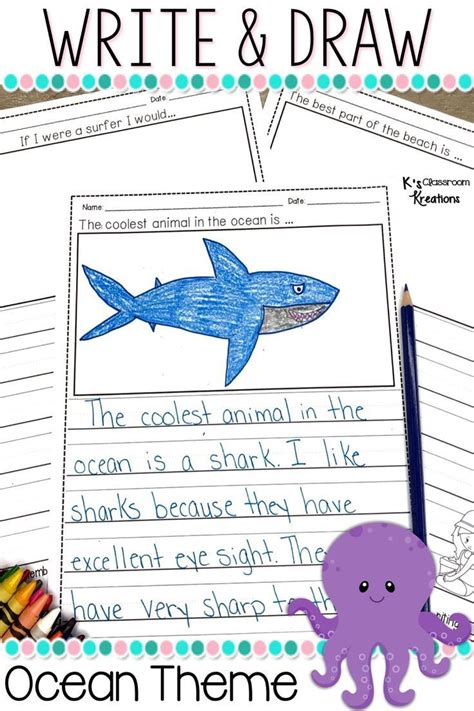 WRITE & DRAW
Date
If I were a surfer I would...
The best part of the beach is ...
K's Classroom
Kreations
Name: Date:
The coolest animal in the ocean is ...
The coolest animal in the
ocean is a shark. I like
sharks because they have
excellent eye sight. The
have very sharp t
Ocean Theme